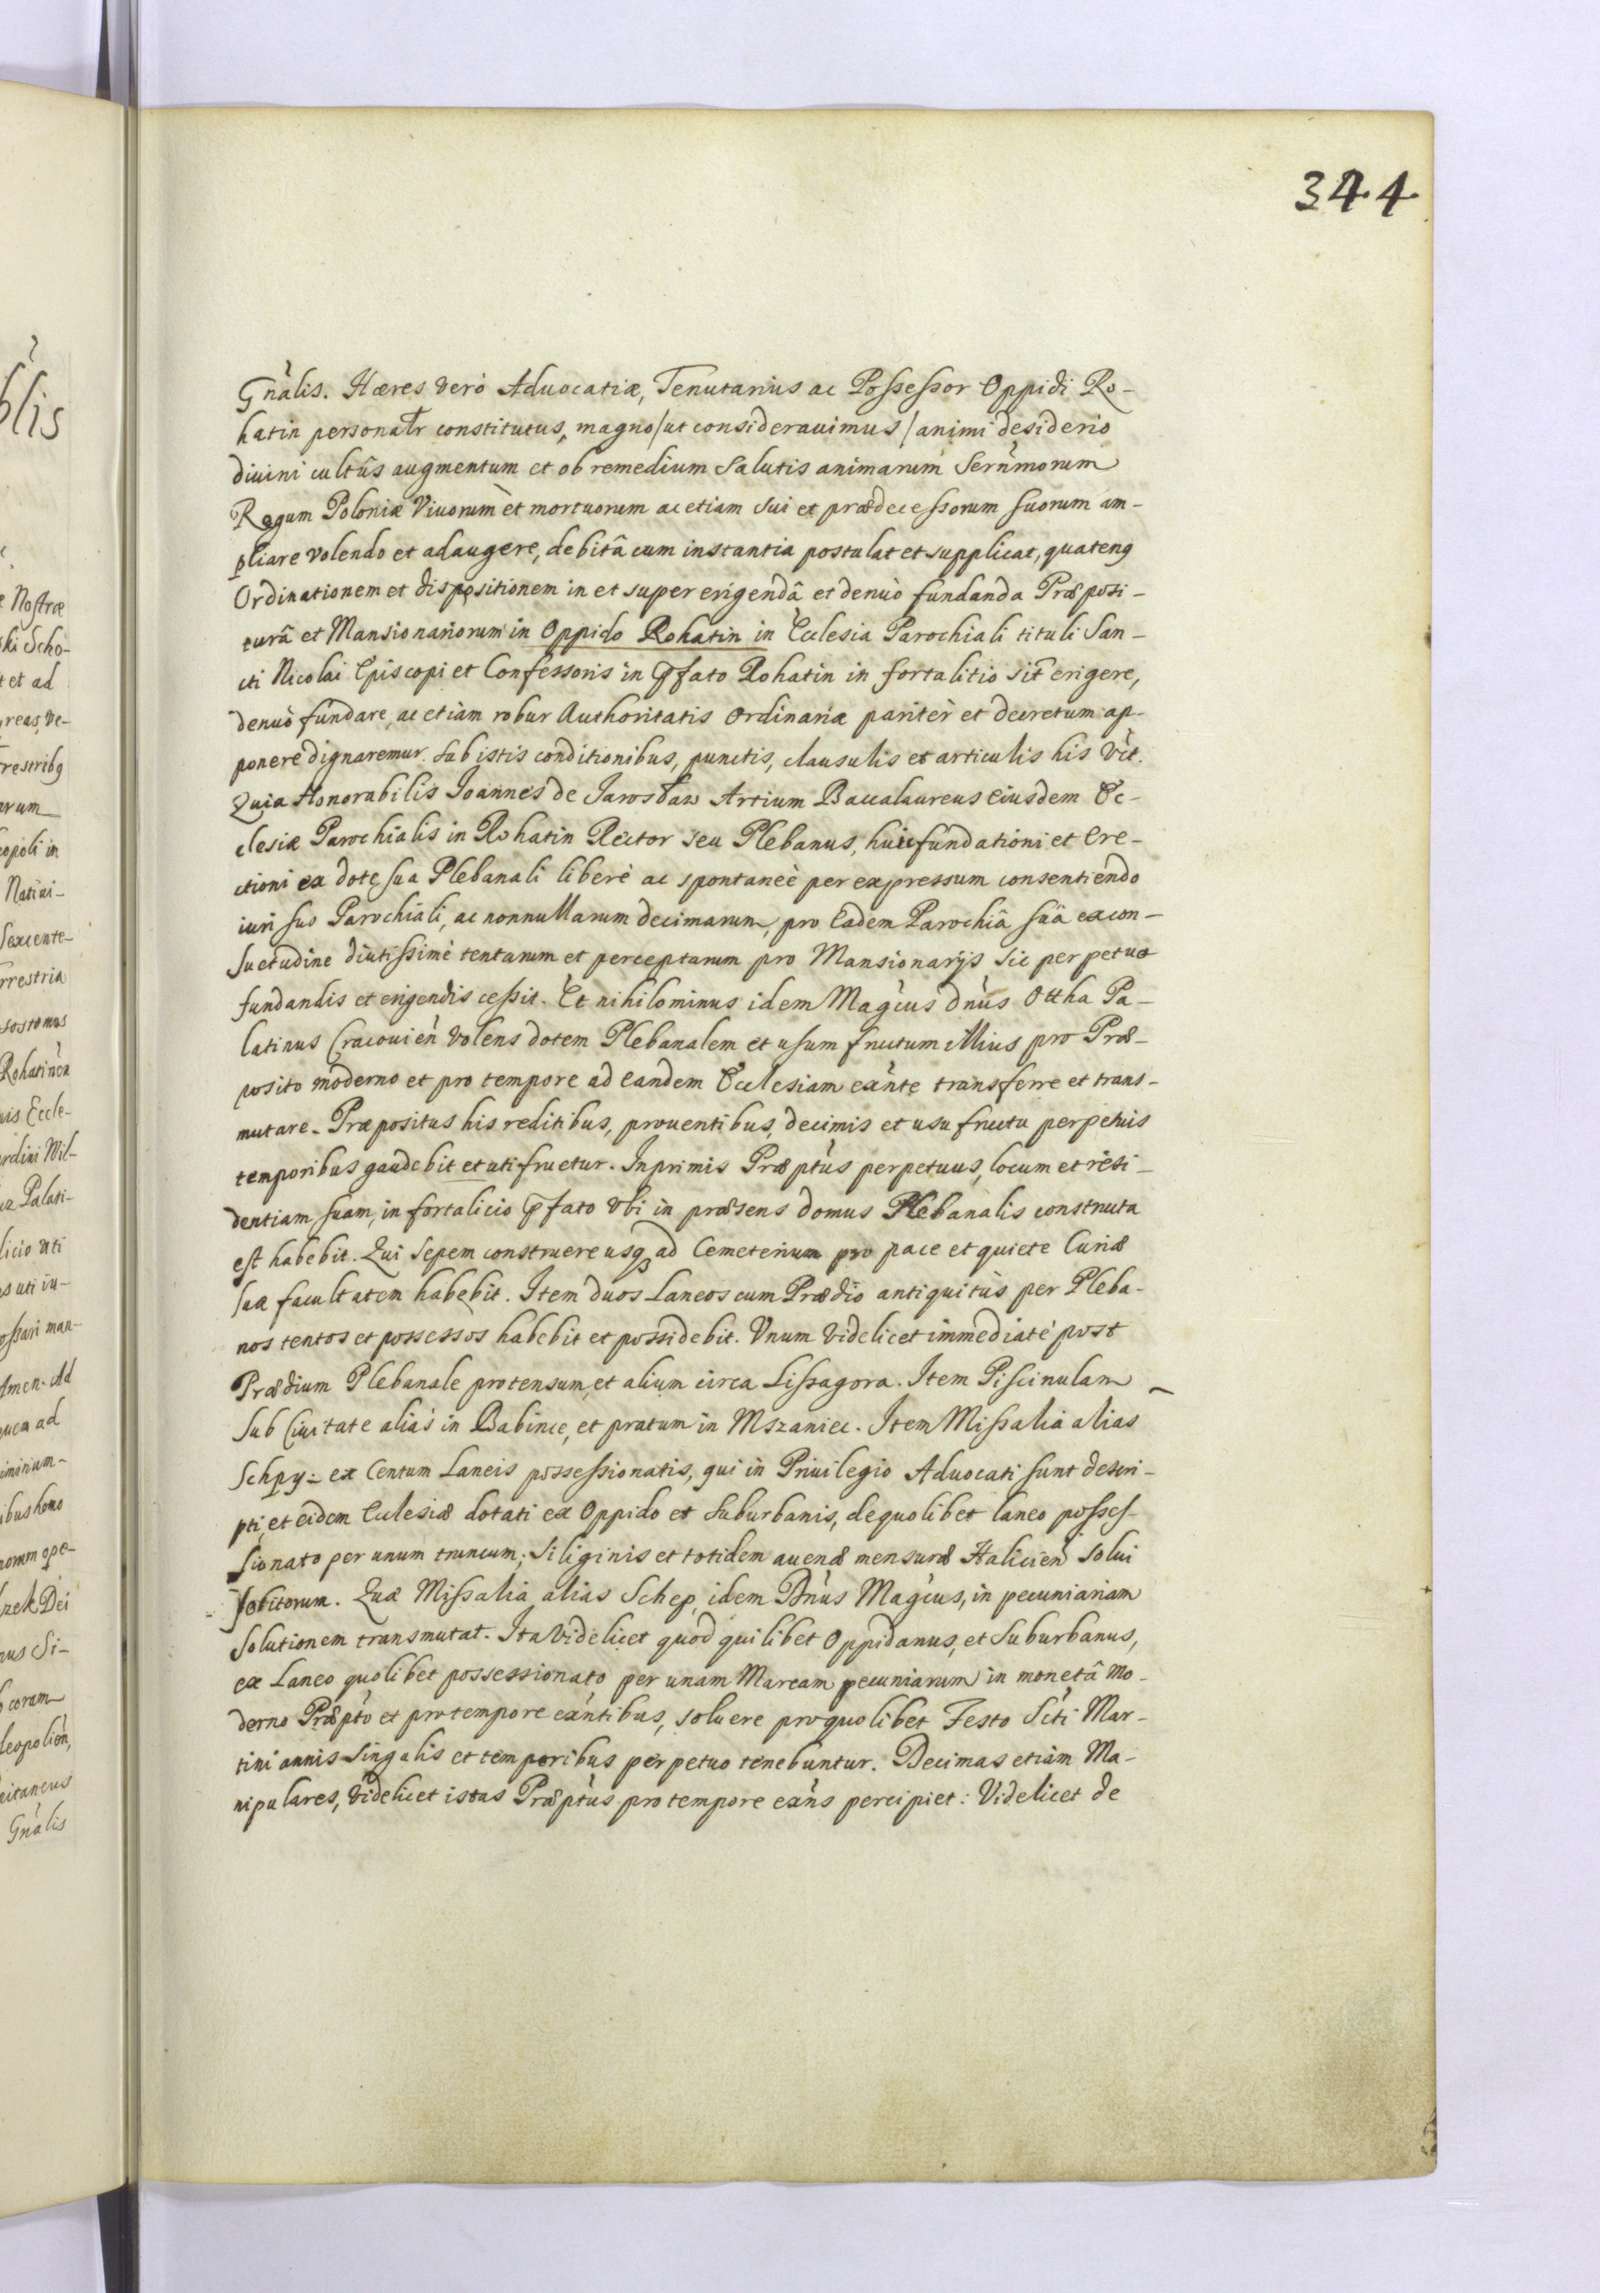 344
Gn̄alis. Hæres verò Aduocatiæ, Tenutarius ac Possessor Oppidi Ro-
hatin personalr̄ constitutus, magno /ut considerauimus/ animi desiderio
diuini cultûs augmentum et ob remedium salutis animarum Sern̄morum
Regum Poloniæ Viuorum et mortuorum ac etiam sui et prædecessorum suorum am-
pliare volendo et adaugere, debitâ cum instantia postulat et supplicat, quatenꝯ
Ordinationem et dispositionem in et super erigendâ et denuò fundanda Præposi-
turâ et Mansionariorum in Oppido Rohatin in Ecclesia Parochiali tituli San-
cti Nicolai Episcopi et Confessoris in p̄fato Rohatin in fortalitio sit̄ erigere,
denuò fundare, ac etiam robur Authoritatis Ordinariæ pariter et decretum ap-
ponere dignaremur. Sub istis conditionibus, punctis, clausulis et articulis his vẑt.
Quia Honorabilis Joannes de Jarosław Artium Baccalaureus eiusdem Ec-
clesiæ Parochialis in Rohatin Rector seu Plebanus, huic fundationi et Ere-
ctioni ex dote sua Plebanali liberè ac spontaneè per expressum consentiendo
iuri suo Parochiali, ac nonnullarum decimarum, pro Eadem Parochiâ suâ ex con-
suetudine diutissimè tentarum et perceptarum pro Mansionarijs sic perpetuo
fundandis et erigendis cessit. Et nihilominus idem Magc̄us Dn̄us Ottha Pa-
latinus Cracouien̄ volens dotem Plebanalem et usum fructum illius pro Præ-
posito moderno et pro tempore ad eandem Ecclesiam exn̄te transferre et trans-
mutare. Præpositus his reditibus, prouentibus, decimis et usu fructu perpetuis
temporibus gaudebit et uti fruetur. Inprimis Præpt̄us perpetuus, locum et resi-
dentiam suam, in fortalicio p̄fato vbi in præsens domus Plebanalis constructa
est habebit. Qui sepem construere usqꝫ ad Cemeterium pro pace et quiete Curiæ
suæ facultatem habebit. Item duos Laneos cum Prædio antiquitùs per Pleba-
nos tentos et possessos habebit et possidebit. Vnum videlicet immediatè post
Prædium Plebanale protensum, et alium circa Lissagora. Item Piscinulam
sub Ciuitate alias in Babince, et pratum in Mszaniec. Item Missalia alias
Schpy: ex Centum Laneis possessionatis, qui in Priuilegio Aduocati sunt descri-
pti, et eidem Ecclesiæ dotati ex Oppido et Suburbanis, de quolibet laneo posses-
sionato per unum truncum, siliginis et totidem auenæ mensuræ Halicien̄ solui
solitorum. Quæ Missalia alias Schep, idem Dn̄us Magc̄us, in pecuniariam
solutionem transmutat. Ita videlicet quod quilibet Oppidanus, et Suburbanus,
ex Laneo quolibet possessionato per unam Marcam pecuniarum in monetâ mo-
derno Præpt̄o et pro tempore exn̄tibus, soluere pro quolibet Festo Sc̄ti Mar-
tini annis singulis et temporibus perpetuo tenebuntur. Decimas etiam Ma-
nipulares, videlicet istas Præpt̄us pro tempore exn̄s percipiet: Videlicet de